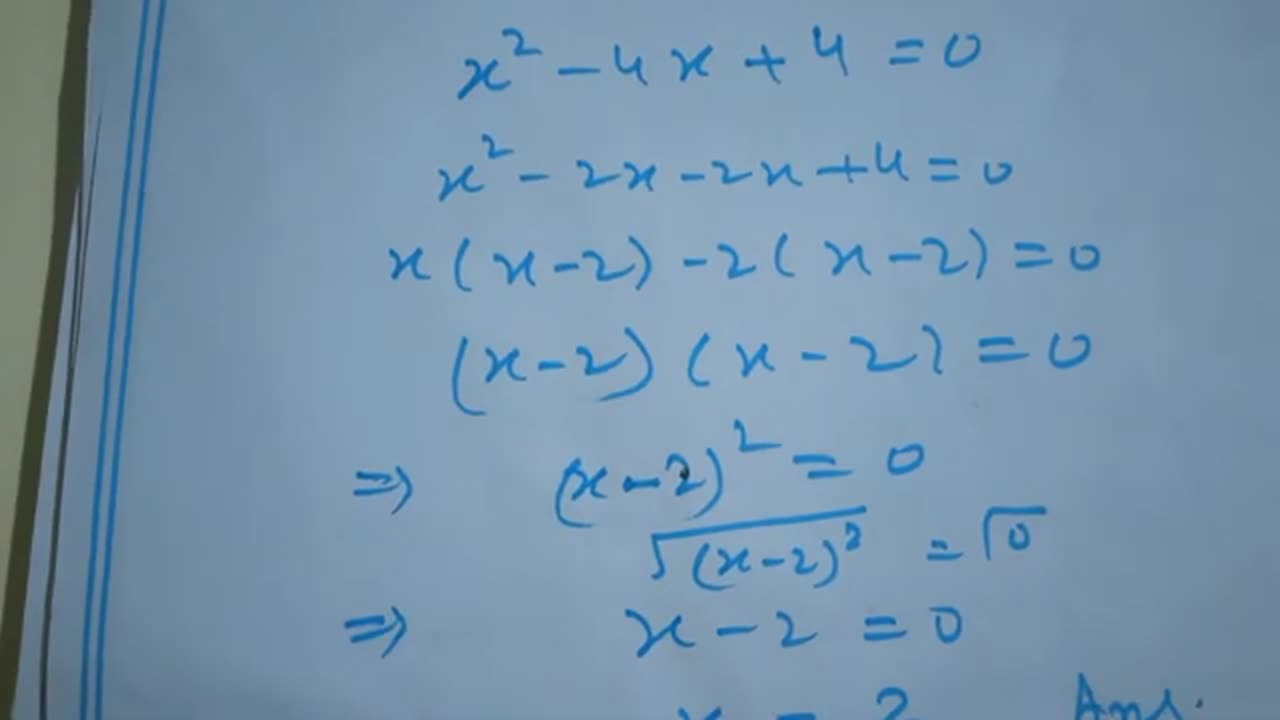 x² - 4x + 4 = 0
x² - 2x - 2x + 4 = 0
x(x-2) - 2(x-2) = 0
(x-2)(x-2) = 0
⇒ (x-2)² = 0
√(x-2)² = √0
⇒ x - 2 = 0
x = 2 Ans.